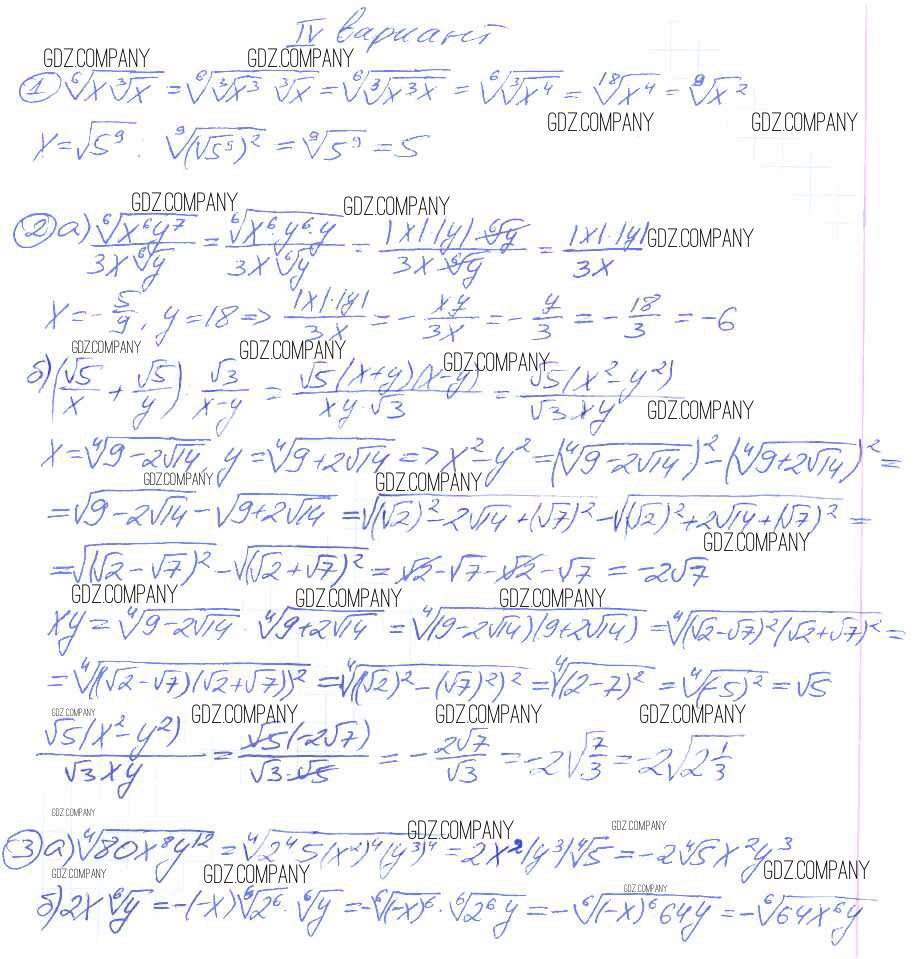 IV вариант
GDZ.COMPANY GDZ.COMPANY
① ⁶√(x ³√x) = ⁶√(³√x³ ³√x) = ⁶√(³√(x³x)) = ⁶√(³√x⁴) = ¹⁸√x⁴ = ⁹√x²
GDZ.COMPANY GDZ.COMPANY
x = √5⁹ : ⁹√((√5⁹)²) = ⁹√5⁹ = 5
GDZ.COMPANY GDZ.COMPANY
② а) ⁶√(x⁶y⁷)/(3x ⁶√y) = ⁶√(x⁶·y⁶·y)/(3x ⁶√y) = |x|·|y| ⁶√y/(3x ⁶√y) = |x|·|y|/(3x) GDZ.COMPANY
x = -5/9, y = 18 => |x|·|y|/(3x) = -xy/(3x) = -y/3 = -18/3 = -6
GDZ.COMPANY GDZ.COMPANY GDZ.COMPANY
б) (√5/x + √5/y) · √3/(x-y) = √5(x+y)(x-y)/(xy·√3) = √5(x²-y²)/(√3xy)
GDZ.COMPANY
x = ⁴√(9-2√14), y = ⁴√(9+2√14) => x²-y² = (⁴√(9-2√14))² - (⁴√(9+2√14))² =
GDZ.COMPANY GDZ.COMPANY
= √(9-2√14) - √(9+2√14) = √((√2)²-2√14+(√7)²) - √((√2)²+2√14+(√7)²) =
GDZ.COMPANY
= √((√2-√7)²) - √((√2+√7)²) = √2-√7-√2-√7 = -2√7
GDZ.COMPANY GDZ.COMPANY GDZ.COMPANY
xy = ⁴√(9-2√14) · ⁴√(9+2√14) = ⁴√((9-2√14)(9+2√14)) = ⁴√((√2-√7)²(√2+√7)²) =
= ⁴√(((√2-√7)(√2+√7))²) = ⁴√(((√2)²-(√7)²)²) = ⁴√((2-7)²) = ⁴√((-5)²) = √5
GDZ.COMPANY GDZ.COMPANY GDZ.COMPANY GDZ.COMPANY
√5(x²-y²)/(√3xy) = √5(-2√7)/(√3·√5) = -2√7/√3 = -2√(7/3) = -2√(2 1/3)
GDZ.COMPANY GDZ.COMPANY GDZ.COMPANY
③ а) ⁴√(80x⁸y¹²) = ⁴√(2⁴5(x²)⁴(y³)⁴) = 2x²|y³|⁴√5 = -2⁴√5x²y³
GDZ.COMPANY GDZ.COMPANY GDZ.COMPANY GDZ.COMPANY
б) 2x ⁶√y = -(-x)⁶√2⁶·⁶√y = -⁶√((-x)⁶)·⁶√(2⁶y) = -⁶√((-x)⁶64y) = -⁶√(64x⁶y)